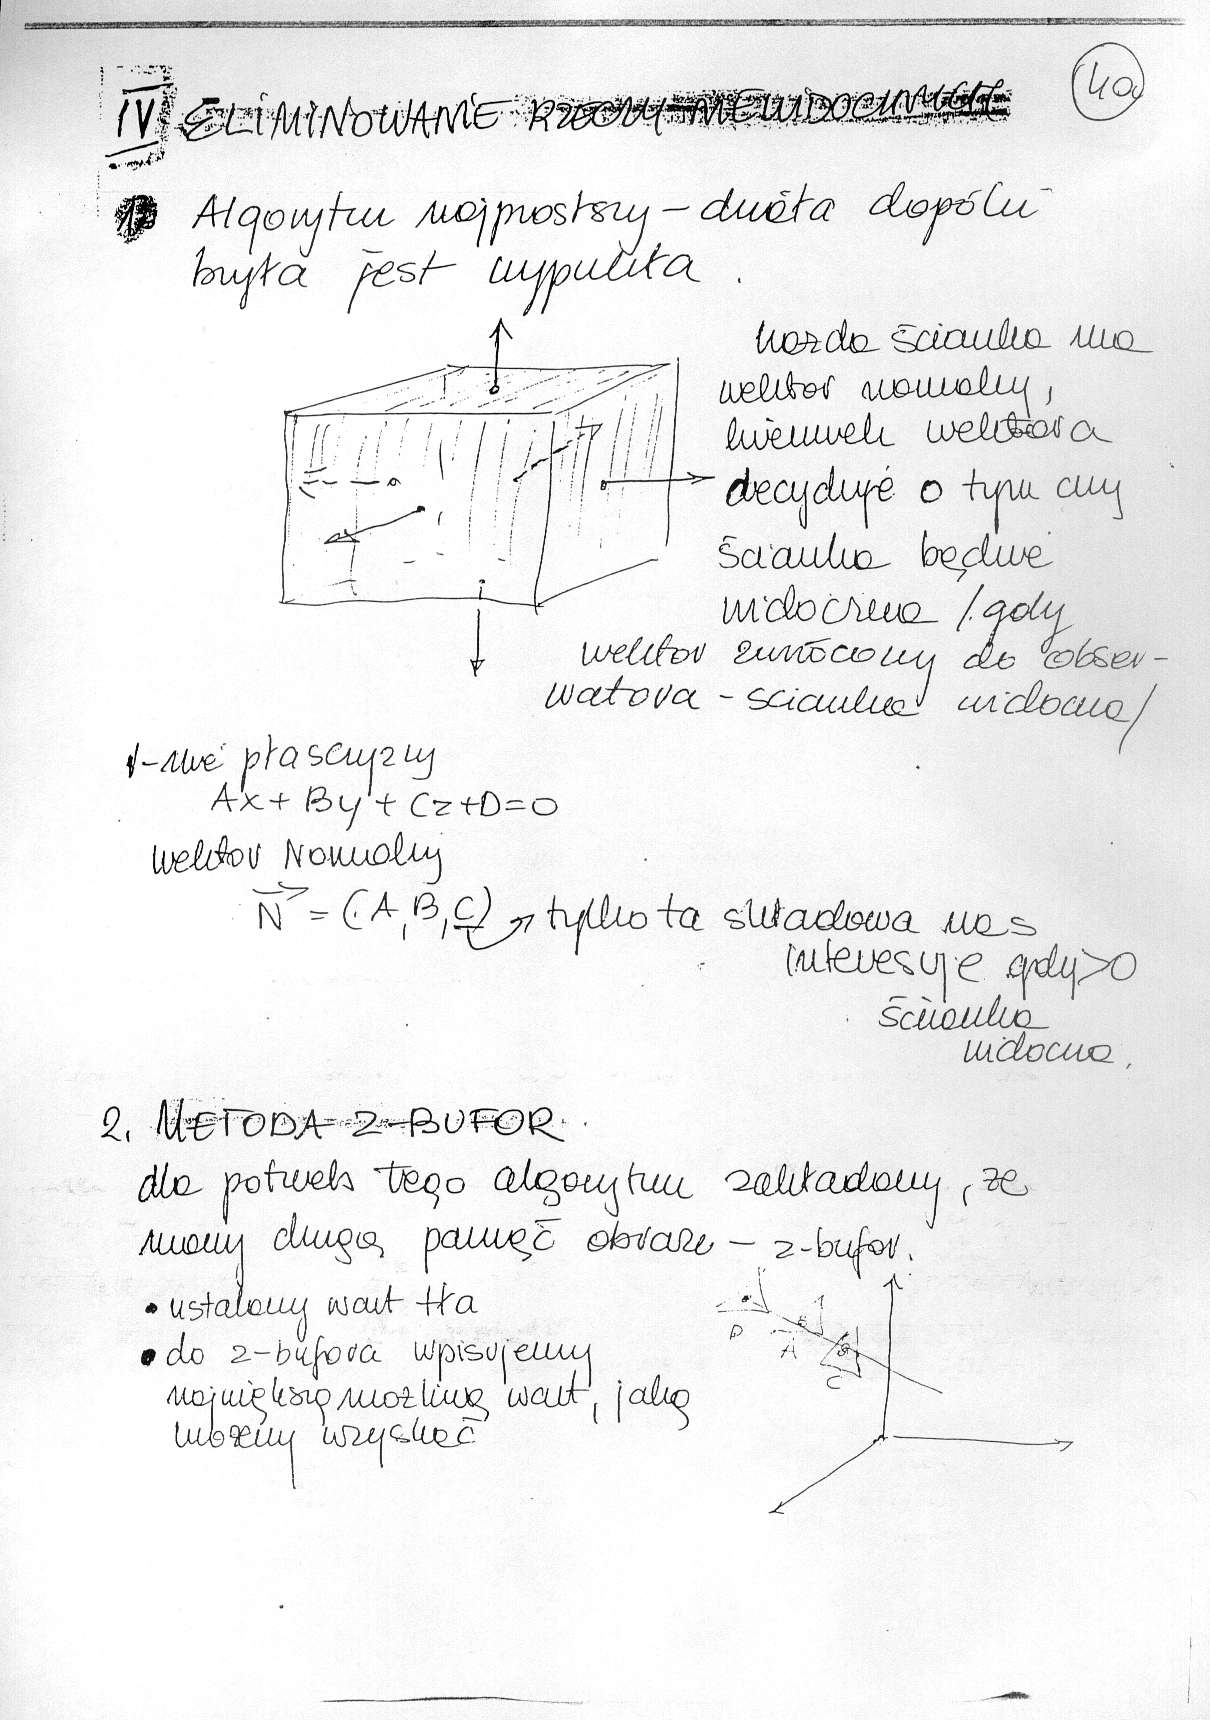 4a
IV ELIMINOWANIE RZECZY NIEWIDOCZNYCH
1. Algorytm najprostszy – działa dopóki
bryła jest wypukła.
każda ścianka ma
wektor normalny,
kierunek wektora
decyduje o typu czy
ścianka będzie
widoczna /gdy
wektor zwrócony do obser-
watora – scianka widoczna/
r-nie płaszczyzny
Ax + By + Cz + D = 0
wektor Normalny
N = (A, B, C) tylko ta składowa nas
interesuje gdy > 0
ścianka
widoczna.
2. METODA Z-BUFOR.
dla potrzeb tego algorytmu zakładamy, że
mamy drugą pamięć obrazu – z-bufor.
• ustalamy wart tła
• do z-bufora wpisujemy
największą możliwą wart, jaką
możemy uzyskać
A
C